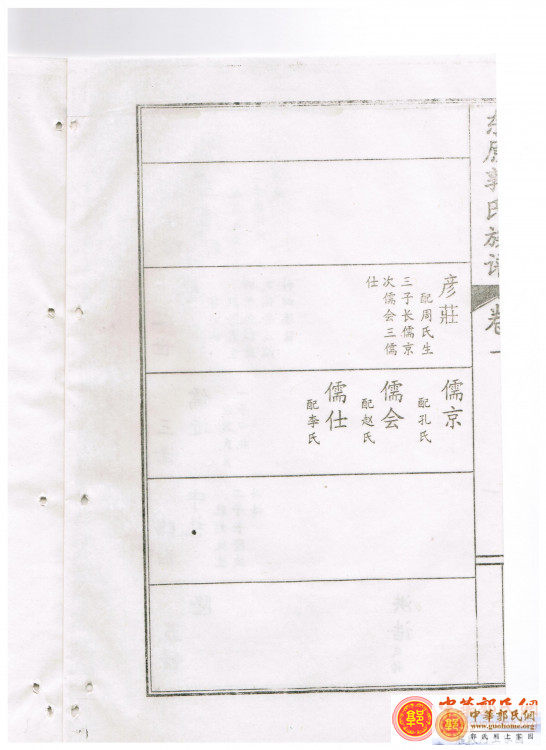 郭氏族谱
卷一
彦莊
配周氏生
三子长儒京
次儒会三儒
仕
儒京
配孔氏
儒会
配赵氏
儒仕
配李氏
中華郭氏網
中華郭氏網
www.guochome.com
郭氏网上家园